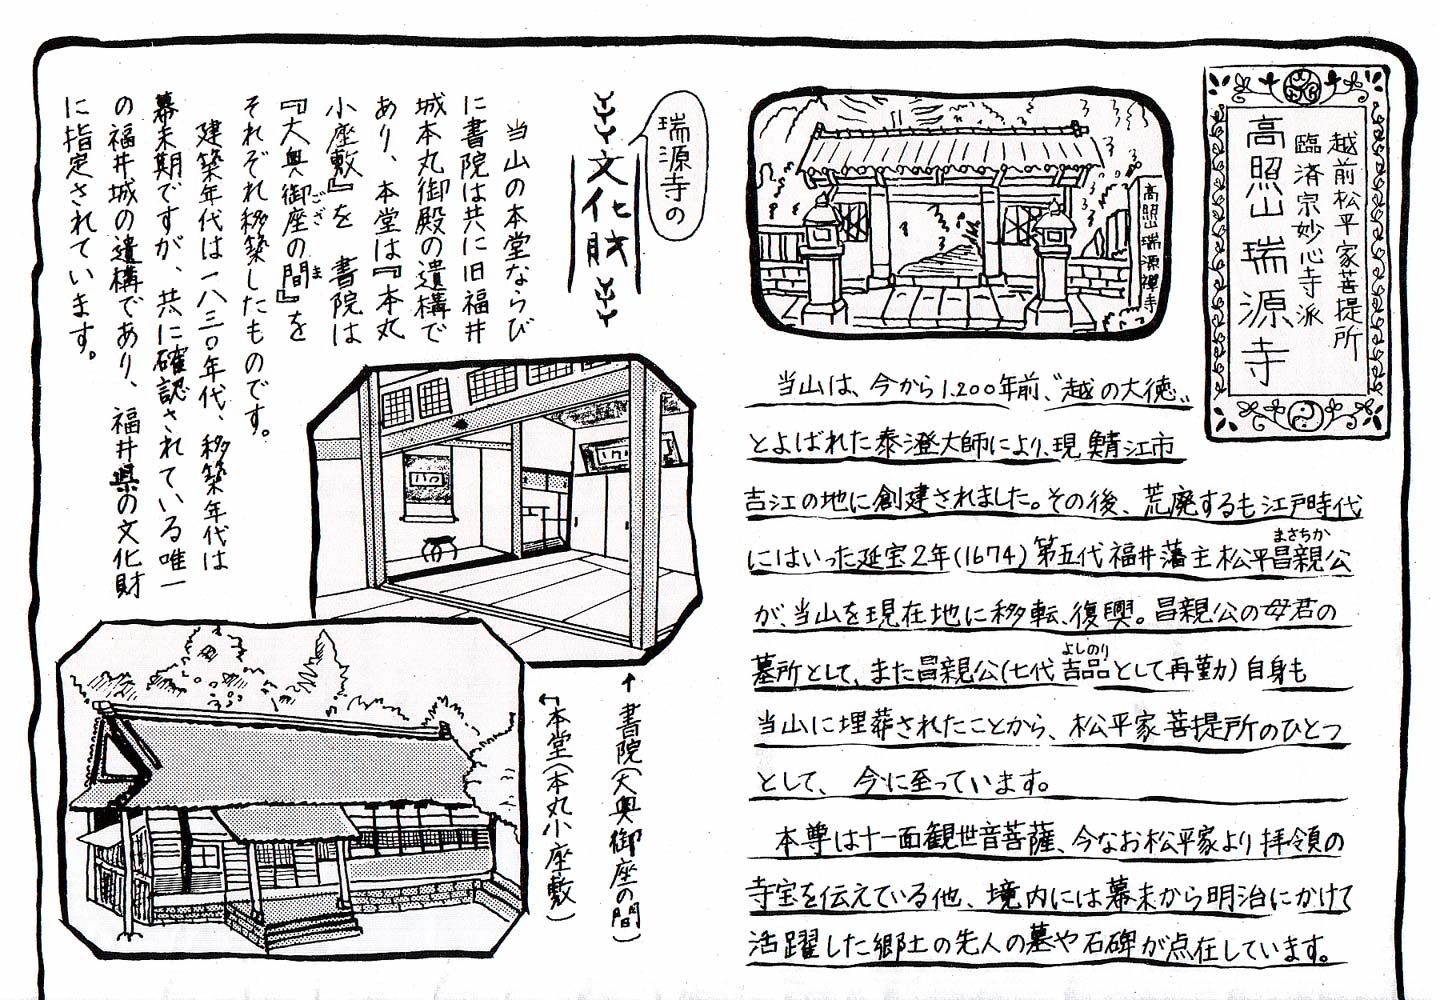 越前松平家菩提所
臨済宗妙心寺派
高照山 瑞源寺
高照山 瑞源禅寺
当山は、今から1.200年前、〝越の大徳〟
とよばれた泰澄大師により、現 鯖江市
吉江の地に創建されました。その後、荒廃するも江戸時代
にはいった延宝2年(1674)第五代福井藩主松平昌親公
まさちか
が、当山を現在地に移転、復興。昌親公の母君の
墓所として、また昌親公(七代吉品として再勤)自身も
よしのり
当山に埋葬されたことから、松平家菩提所のひとつ
として、今に至っています。
本尊は十一面観世音菩薩、今なお松平家より拝領の
寺宝を伝えている他、境内には幕末から明治にかけて
活躍した郷土の先人の墓や石碑が点在しています。
瑞源寺の
文化財
当山の本堂ならび
に書院は共に旧福井
城本丸御殿の遺構で
あり、本堂は『本丸
小座敷』を 書院は
『大奥御座の間』を
ござ ま
それぞれ移築したものです。
建築年代は一八三〇年代、移築年代は
幕末期ですが、共に確認されている唯一
の福井城の遺構であり、福井県の文化財
に指定されています。
↑書院(大奥御座の間)
↰本堂(本丸小座敷)